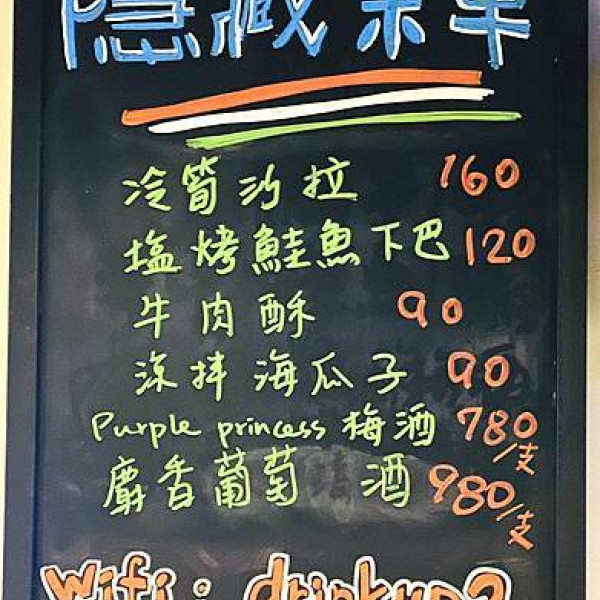 隱藏菜單
冷筍沙拉 160
塩烤鮭魚下巴 120
牛肉酥 90
涼拌海瓜子 90
Purple princess 梅酒 780/支
麝香葡萄 酒 980/支
Wifi: drinkup2